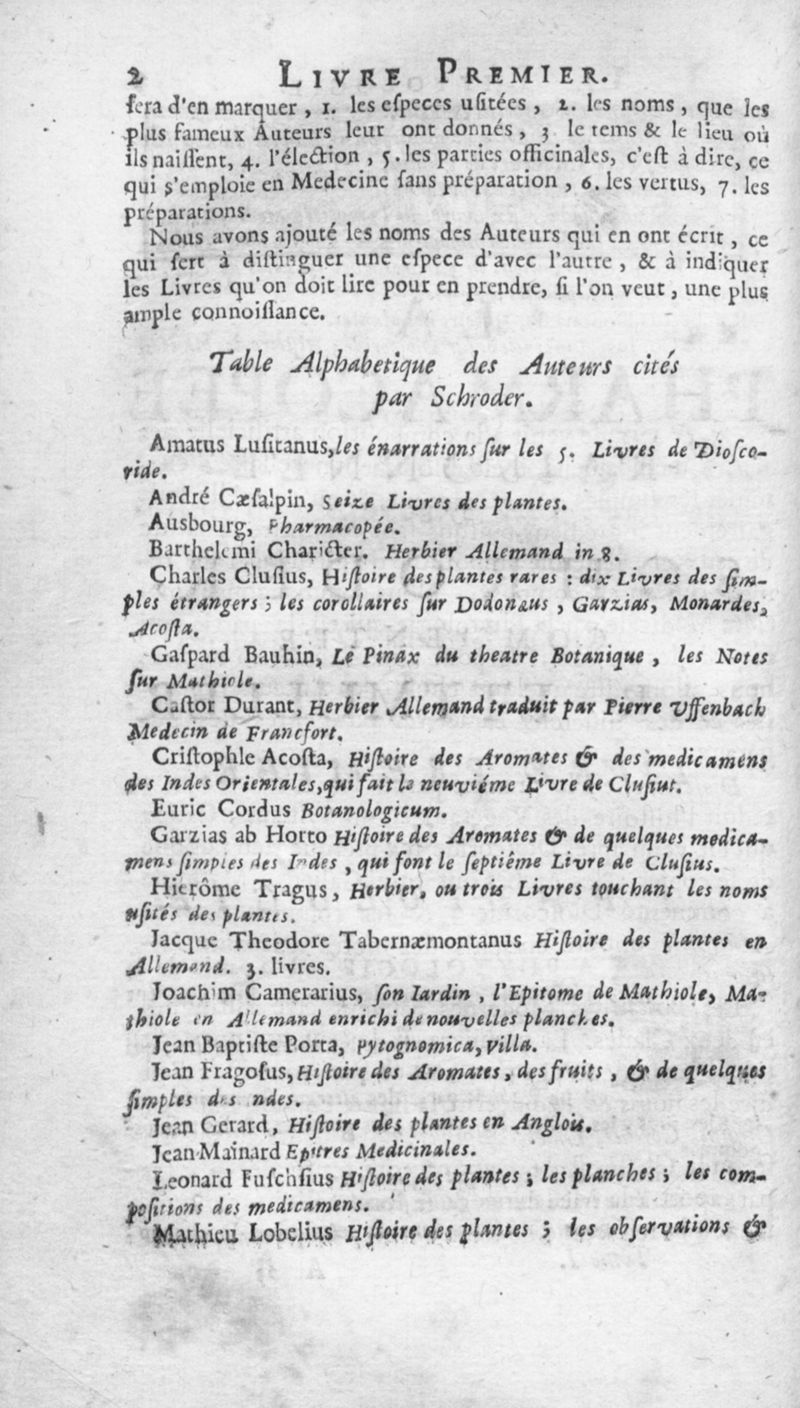 2 LIVRE PREMIER.
ſera d'en marquer, 1. les eſpeces uſitées, 2. les noms, que les
plus fameux Auteurs leur ont donnés, 3 le tems & le lieu où
ils naiſſent, 4. l'élection, 5. les parties officinales, c'eſt à dire, ce
qui s'emploie en Medecine ſans préparation, 6. les vertus, 7. les
préparations.
Nous avons ajouté les noms des Auteurs qui en ont écrit, ce
qui ſert à diſtinguer une eſpece d'avec l'autre, & à indiquer
les Livres qu'on doit lire pour en prendre, ſi l'on veut, une plus
ample connoiſſance.
Table Alphabetique des Auteurs cités
par Schroder.
Amatus Luſitanus, les énarrations ſur les 5. Livres de Dioſco-
ride.
André Cæſalpin, Seize Livres des plantes.
Ausbourg, Pharmacopée.
Barthelemi Charicter. Herbier Allemand in 8.
Charles Cluſius, Hiſtoire des plantes rares : dix Livres des ſim-
ples étrangers ; les corollaires ſur Dodonæus, Garzias, Monardes,
Acoſta.
Gaſpard Bauhin, Le Pinax du theatre Botanique, les Notes
ſur Mathiole.
Caſtor Durant, Herbier Allemand traduit par Pierre Vffenbach
Medecin de Francfort.
Criſtophle Acoſta, Hiſtoire des Aromates & des medicamens
des Indes Orientales, qui fait le neuviéme Livre de Cluſiut.
Euric Cordus Botanologicum.
Garzias ab Horto Hiſtoire des Aromates & de quelques medica-
mens ſimples des Indes, qui font le ſeptiéme Livre de Cluſius.
Hierôme Tragus, Herbier, ou trois Livres touchant les noms
uſités des plantes.
Jacque Theodore Tabernæmontanus Hiſtoire des plantes en
Allemand. 3. livres.
Joachim Camerarius, ſon Iardin, l'Epitome de Mathiole, Ma-
thiole en Allemand enrichi de nouvelles planches.
Jean Baptiſte Porta, Pytognomica, Villa.
Jean Fragoſus, Hiſtoire des Aromates, des fruits, & de quelques
ſimples des ndes.
Jean Gerard, Hiſtoire des plantes en Anglois.
Jean Maïnard Epitres Medicinales.
Leonard Fuſchſius Hiſtoire des plantes ; les planches ; les com-
poſitions des medicamens.
Mathieu Lobelius Hiſtoire des plantes ; les obſervations &